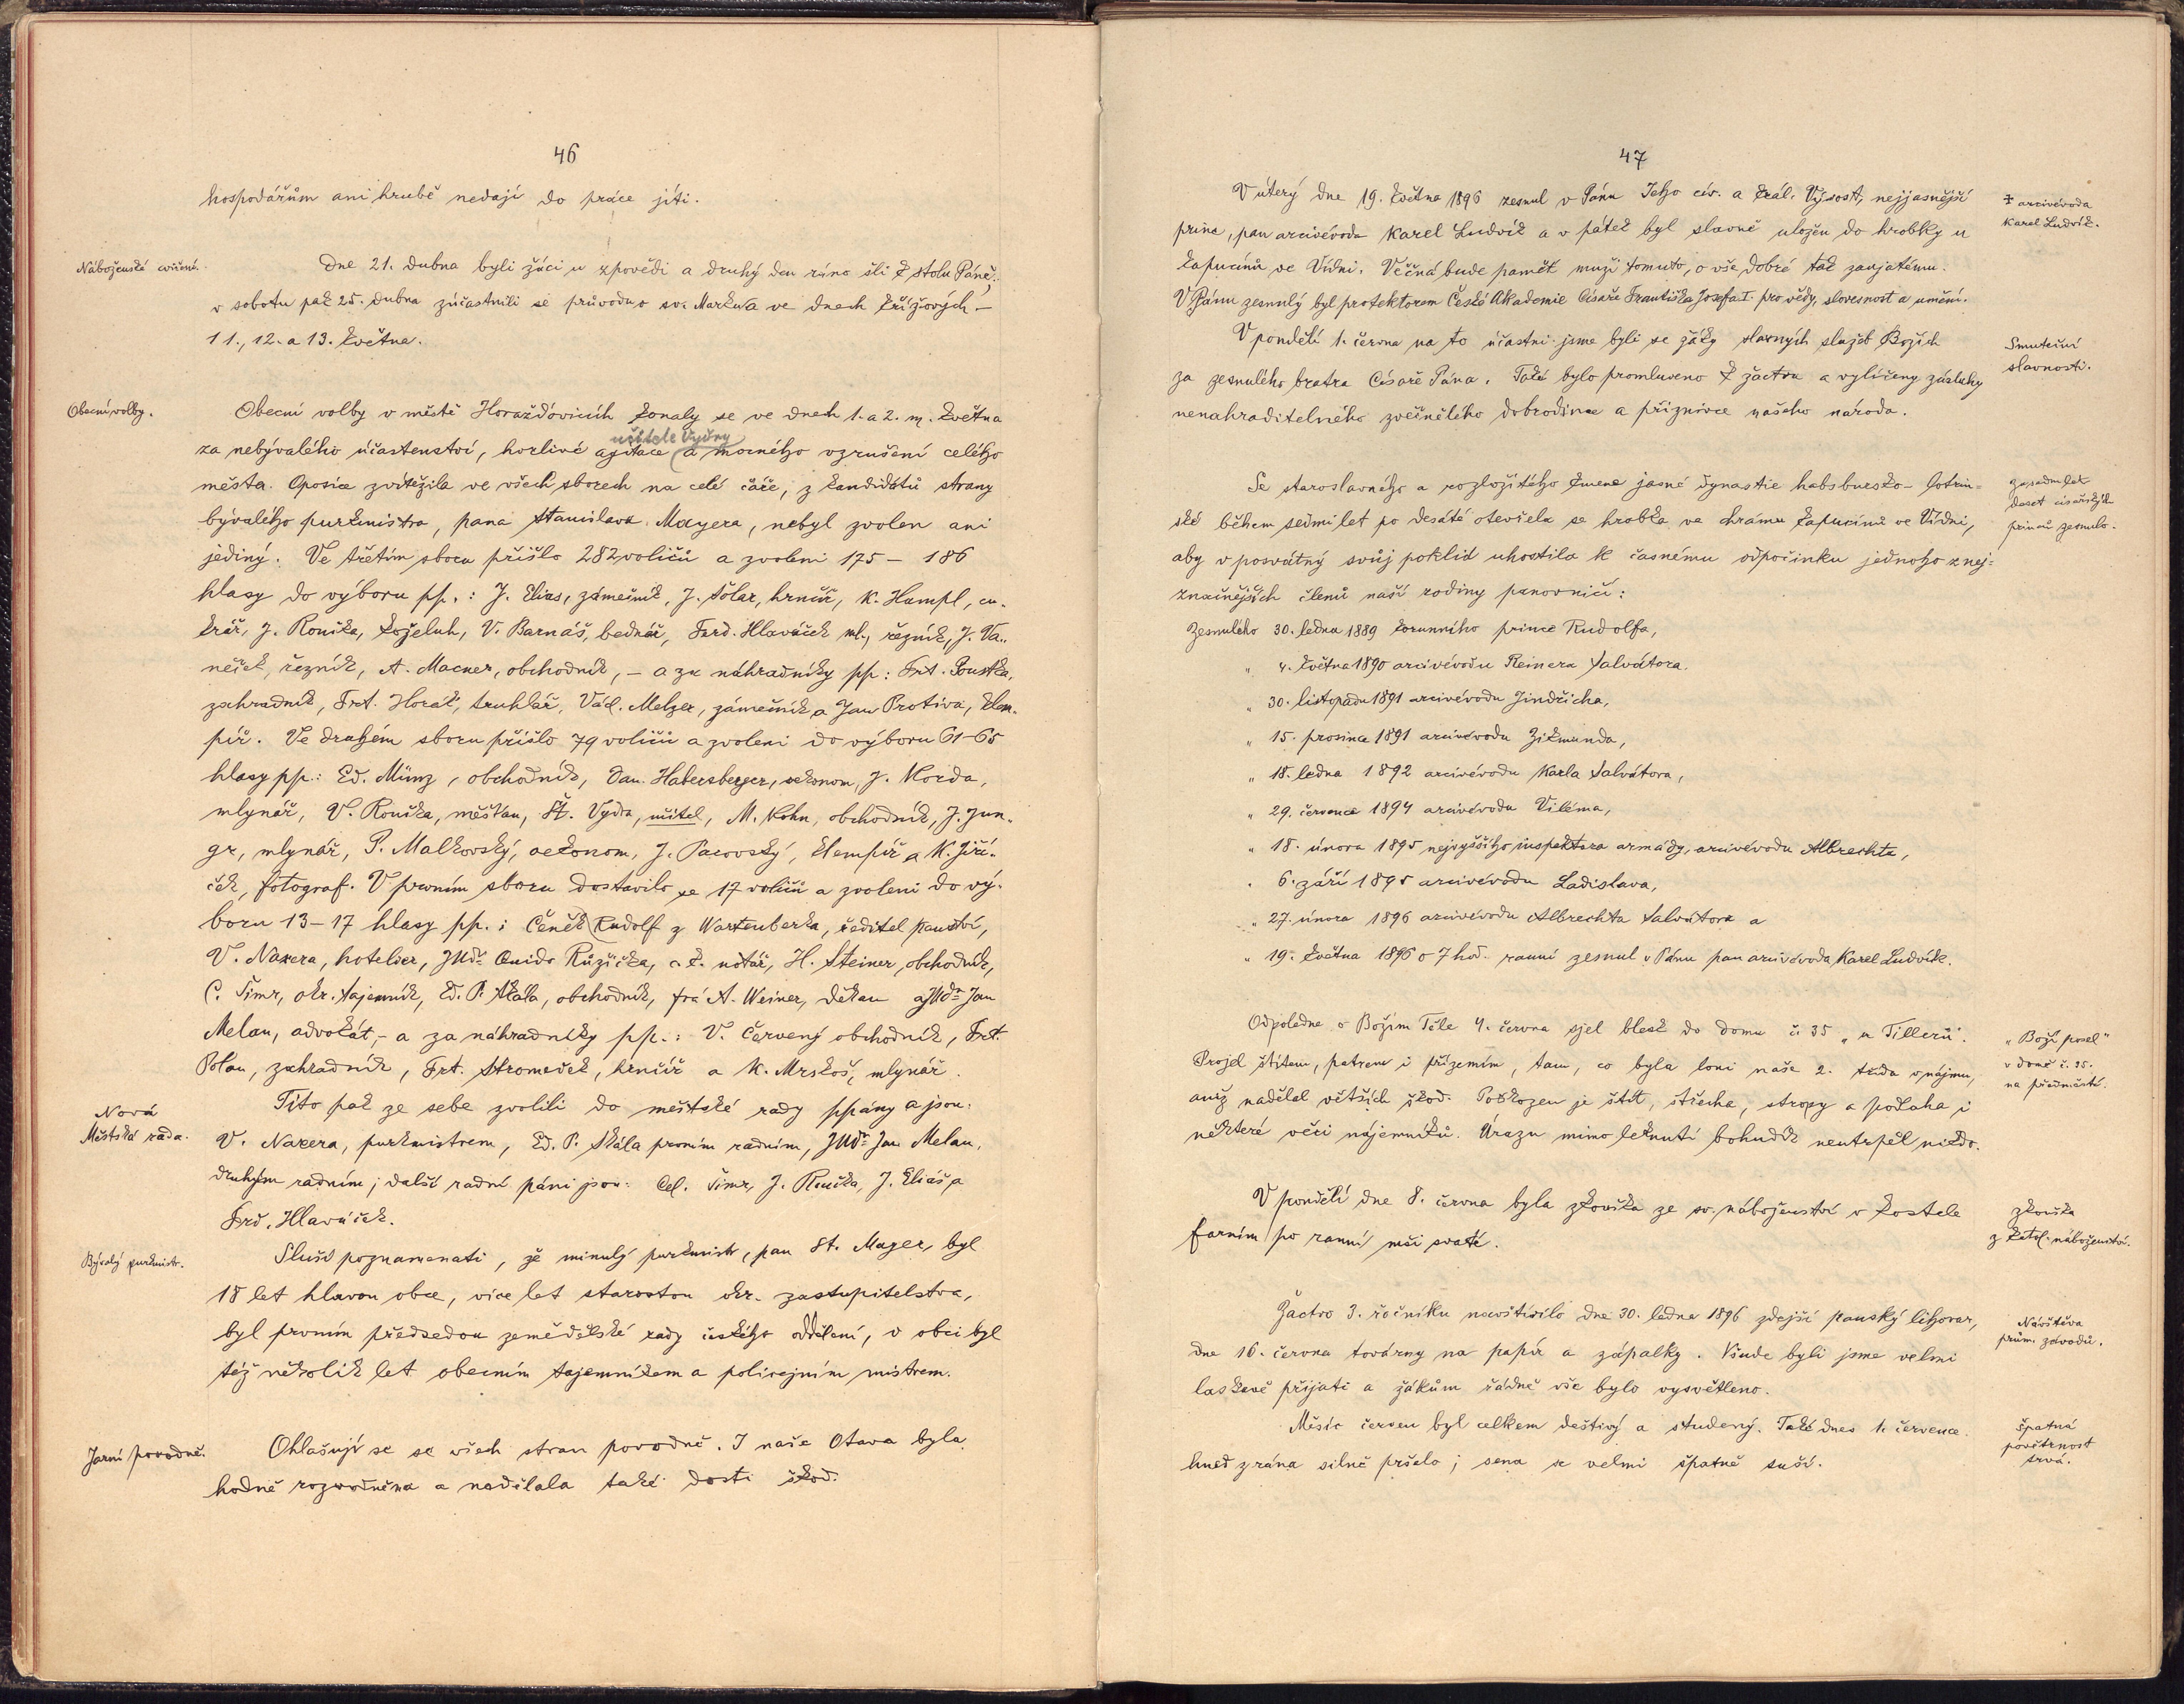 46
hospodářům ani hrubě nedají do práce jíti.
Náboženské cvičení.
Dne 21. dubna byli žáci u zpovědi a druhý den ráno šli k stolu Páně;
v sobotu pak 25. dubna zúčastnili se průvodu o sv. Marku a ve dnech křížových –
11., 12. a 13. května.
Obecní volby.
Obecní volby v městě Horažďovicích konaly se ve dnech 1. a 2. m. května
učitele Vydry
za nebývalého účastenství, horlivé agitace (a mocného vzrušení celého
města. Oposice zvítězila ve všech sborech na celé čáře; z kandidátů strany
bývalého purkmistra, pana Stanislava Mayera, nebyl zvolen ani
jediný. Ve třetím sboru přišlo 282 voličů a zvoleni 175 – 186
hlasy do výboru pp.: J. Elias, zámečník, J. Šolar, hrnčíř, K. Hampl, cu-
krář, J. Rouška, koželuh, V. Barnáš, bednář, Ferd. Hlaváček ml., řezník, J. Va-
něček, řezník, A. Macner, obchodník, – a za náhradníky pp: Frt. Poustka,
zahradník, Frt. Horák, truhlář, Václ. Melzer, zámečník a Jan Protiva, klem-
píř. Ve druhém sboru přišlo 79 voličů a zvoleni do výboru 61–65
hlasy pp.: Ed. Münz, obchodník, Dan. Habersberger, oekonom, J. Korda,
mlynář, V. Rouška, měšťan, Št. Vydra, učitel, M. Kohn, obchodník, J. Jun-
gr, mlynář, P. Malkovský, oekonom, J. Pacovský, klempíř a K. Jiří-
ček, fotograf. V prvním sboru dostavilo se 17 voličů a zvoleni do vý-
boru 13–17 hlasy pp.: Čeněk (Rudolf z Wartenberka, ředitel panství,
V. Naxera, hotelier, JUDr Quido Růžička, c. k. notář, H. Steiner, obchodník,
C. Šimr, okr. tajemník, Ed. P. Skála, obchodník, A. Weiner, děkan a JUDr Jan
Melan, advokát, – a za náhradníky pp.: V. Červený obchodník, Frt.
Polan, zahradník, Frt. Stromeček, hrnčíř a K. Mrskoš, mlynář.
Nová
Městská rada.
Tito pak ze sebe zvolili do městské rady ppány a jsou:
V. Naxera, purkmistrem, Ed. P. Skála prvním radním, JUDr Jan Melan,
druhým radním; další radní páni jsou: Cel. Šimr, J. Rouška, J. Eliáš a
Frd. Hlaváček.
Bývalý purkmistr.
Sluší poznamenati, že minulý purkmistr, pan St. Mayer, byl
18 let hlavou obce, více let starostou okr. zastupitelstva,
byl prvním předsedou zemědělské rady českého oddělení, v obci byl
též několik let obecním tajemníkem a policejním mistrem.
Jarní povodně.
Ohlašují se se všech stran povodně. I naše Otava byla
hodně rozvodněna a nadělala také dosti škod.
47
V úterý dne 19. května 1896 zesnul v Pánu Jeho cís. a král. Výsost, nejjasnější
princ, pan arcivévoda Karel Ludvík a v pátek byl slavně uložen do hrobky u
kapucínů ve Vídni. Věčná bude paměť muži tomuto, o vše dobré tak zaujatému.
V Pánu zesnulý byl protektorem České Akademie Císaře Františka Josefa I. pro vědy, slovesnost a umění.
✝ arcivévoda
Karel Ludvík.
V pondělí 1. června na to účastni jsme byli se žáky slavných služeb Božích
za zesnulého bratra Císaře Pána. Také bylo promluveno k žactvu a vylíčeny zásluhy
nenahraditelného zvěčnělého dobrodince a příznivce našeho národa.
Smuteční
slavnosti.
Se staroslavného a rozložitého kmene jasné dynastie habsbursko-lotrin-
ské během sedmi let po desáté otevřela se hrobka ve chrámu kapucínů ve Vídni,
aby v posvátný svůj poklid uhostila k časnému odpočinku jednoho z nej-
značnějších členů naší rodiny panovničí:
za sedm let
deset císařských
princů zesnulo.
Zesnulého 30. ledna 1889 korunního prince Rudolfa,
" 4. května 1890 arcivévodu Reinera Salvátora.
" 30. listopadu 1891 arcivévodu Jindřicha,
" 15. prosince 1891 arcivévodu Zikmunda,
" 18. ledna 1892 arcivévodu Karla Salvátora,
" 29. července 1894 arcivévodu Viléma,
" 18. února 1895 nejvyššího inspektora armády, arcivévodu Albrechta,
" 6. září 1895 arcivévodu Ladislava,
" 27. února 1896 arcivévodu Albrechta Salvátora a
" 19. května 1896 o 7 hod. ranní zesnul v Pánu pan arcivévoda Karel Ludvík.
Odpoledne o Božím Těle 4. června sjel blesk do domu č. 35 „u Tillerů".
Projel štítem, patrem i přízemím, tam, co byla loni naše 2. třída v nájmu,
aniž nadělal větších škod. Poškozen je štít, střecha, stropy a podlaha i
některé věci nájemníků. Úrazu mimo leknutí bohudík neutrpěl nikdo.
„Boží posel"
v domě č. 35.
na předměstí.
V pondělí dne 8. června byla zkouška ze sv. náboženství v kostele
farním po ranní mši svaté.
zkouška
z katol. náboženství.
Žactvo 3. ročníku navštívilo dne 30. ledna 1896 zdejší panský lihovar,
dne 16. června továrny na papír a zápalky. Všude byli jsme velmi
laskavě přijati a žákům řádně vše bylo vysvětleno.
Návštěva
prům. závodů.
Měsíc červen byl celkem deštivý a studený. Také dnes 1. července
hned z rána silně pršelo; sena se velmi špatně suší.
Špatná
povětrnost
trvá.